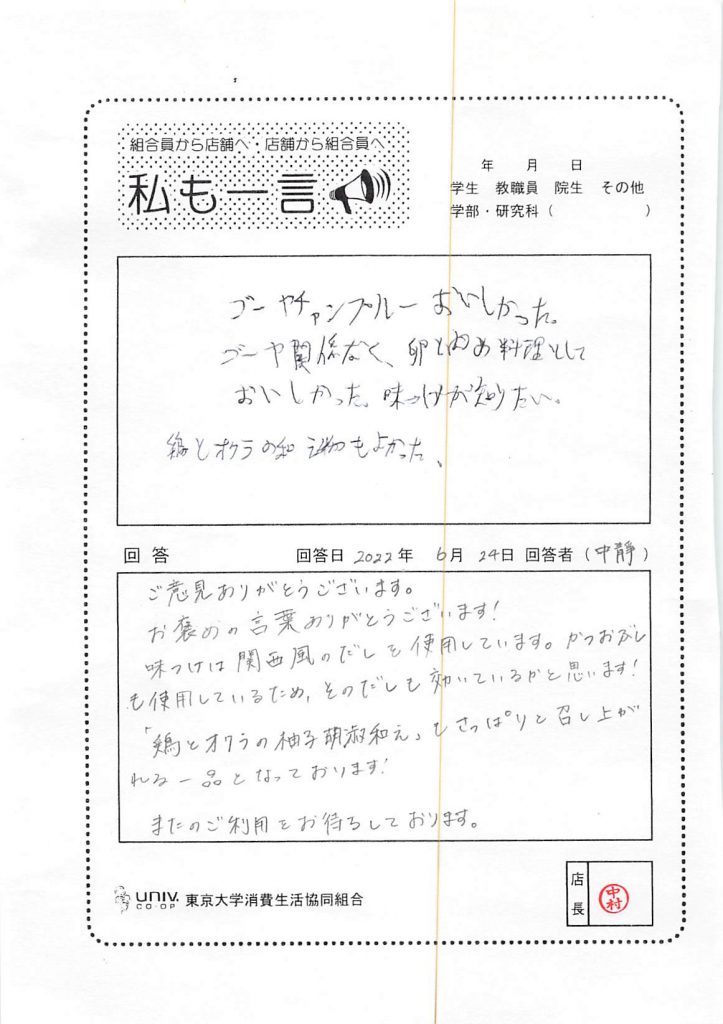 組合員から店舗へ・店舗から組合員へ
私も一言
年 月 日
学生 教職員 院生 その他
学部・研究科（ ）
ゴーヤチャンプルーおいしかった。
ゴーヤ関係なく、卵とじめ料理として
おいしかった。味つけが知りたい。
鶏とオクラの和え物もよかった、
回答 回答日 2022年 6月 24日 回答者（中静）
ご意見ありがとうございます。
お褒めの言葉ありがとうございます!
味つけは関西風のだしを使用しています。かつおぶし
も使用しているため、そのだしも効いているかと思います!
「鶏とオクラの柚子胡淑和え」もさっぱりと召し上が
れる一品となっております!
またのご利用をお待ちしております。
UNIV. CO-OP 東京大学消費生活協同組合
店長
中村